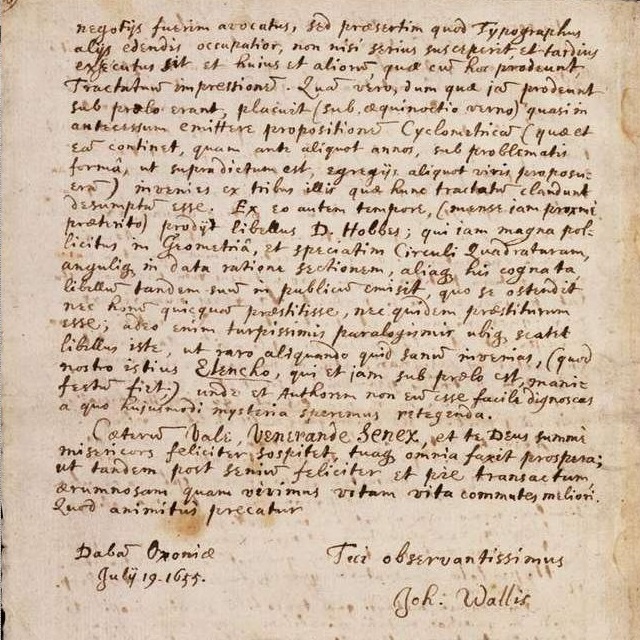 negotijs fuerim avocatus, sed præsertim quod Typographus
alijs edendis occupatior, non nisi serius susceperit et tardius
executus sit et huius et aliorū quæ cū hoc prodeunt,
Tractatuum impressionē. Quā vero, dum quæ jā prodeunt
sub prælo erant, placuit (sub æquinoctio verno) quasi in
antecessum emittere propositionē Cyclometricā (quæ et
eā continet, quam ante aliquot annos, sub problematis
formâ, ut supradictum est, egregijs aliquot viris proposue-
erā) invenies ex tribus illis quæ hunc tractatū claudunt
desumptū esse. Ex eo autem tempore, (mense iam proximè
præterito) prodijt libellus D. Hobbes; qui iam magna pol-
licitus in Geometriâ, et speciatim Circuli Quadraturam,
anguliq; in data ratione sectionem, aliaq; his cognata,
libellū tandem suū in publicū emisit, quo se ostendit
nec bonū quicquā præstitisse, nec quidem præstiturum
esse; adeo enim turpissimis paralogismis ubiq; scatet
libellus iste, ut raro aliquando quid sanū invenias, (quod
nostro istius Elencho, qui et jam sub prælo est, manife-
festū fiet,) unde et Authorem non eū esse facile dignoscas
a quo hujusmodi mysteria speremus retegenda.
Cæterū Vale, Venerande Senex, et te Deus summè
misericors feliciter sospitet, tuaq; omnia faxit prospera;
ut tandem post seniū feliciter et piè transactum
ærumnosam quam vivimus vitam vita commutes meliori.
Quod animitus precatur
Dabā Oxoniæ
Julij 19. 1655.
Tui observantissimus
Joh: Wallis